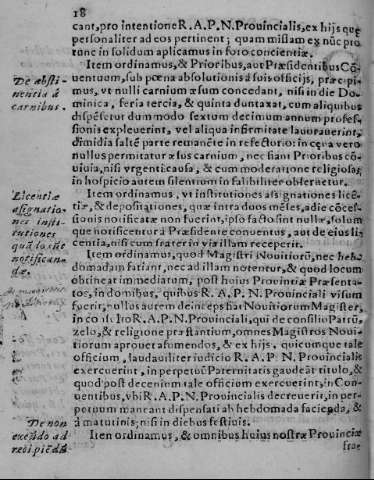 18
cant, pro intentione R. A. P. N. Prouincialis, ex hijs quę
personaliter ad eos pertinent; quam missam ex nũc pro
tunc in solidum aplicamus in foro conscientiæ.
Item ordinamus, & Prioribus, aut Præsidentibus Cõ-
De absti-
nentia à
carnibus.
uentuum, sub pœna absolutionis à suis officijs, præcipi-
mus, vt nulli carnium æsum concedant, nisi in die Do-
minica, feria tercia, & quinta duntaxat, cum aliquibus
dispẽsetur dum modo sextum decimum annum profes-
sionis expleuerint, vel aliqua infirmitate lauorauerint,
dimidia saltẽ parte remanẽte in refectorio: in cęna vero
nullus permitatur æsus carnium, nec fiant Prioribus cõ-
uiuia, nisi vrgenti causa, & cum moderatione religiosa,
in hospicio autem silentium infalibiliter obseruetur.
Licentiæ
asignatio-
nes insti-
tutiones
quãdo sĩt
notifican-
dæ.
Item ordinamus, vt institutiones asignationes licẽ-
tiæ, & depositationes, quæ intra duos mẽses, a die cõces-
sionis notificatæ non fuerint, ipso facto sint nullæ, solum
que notificentur à Præsidente conuentus, aut de eius li-
centia, nisi cum frater in via illam receperit.
Item ordinamus, quod Magistri Nouitiorũ, nec heb-
domadam fatiant, nec ad illam notentur, & quod locum
obtineat immediatum, post huius Prouinciæ Præsenta-
tos, in domibus, quibus R. A. P. N. Prouinciali visum
fuerit, nullus autem deinceps fiat Nouitiorum Magister,
in consilio R. A. P. N. Prouinciali, qui de consilio Patrũ
zelo, & religione præstantium, omnes Magistros Noui-
tiorum aprouet asumendos, & ex hijs, quicumque tale
officium, laudauiliter iudicio R. A. P. N. Prouincialis
exercuerint, in perpetuũ Paternitatis gaudeãt titulo, &
quod post decenium tale officium exercuerint, in Con-
uentibus, vbi R. A. P. N. Prouincialis decreuerit, in per-
petuum maneant dispensati ab hebdomada facienda, &
à matutinis; nisi in diebus festiuis.
De non
exeũdo ad
recipiẽdũ
Item ordinamus, & omnibus huius nostræ Prouinciæ
frae